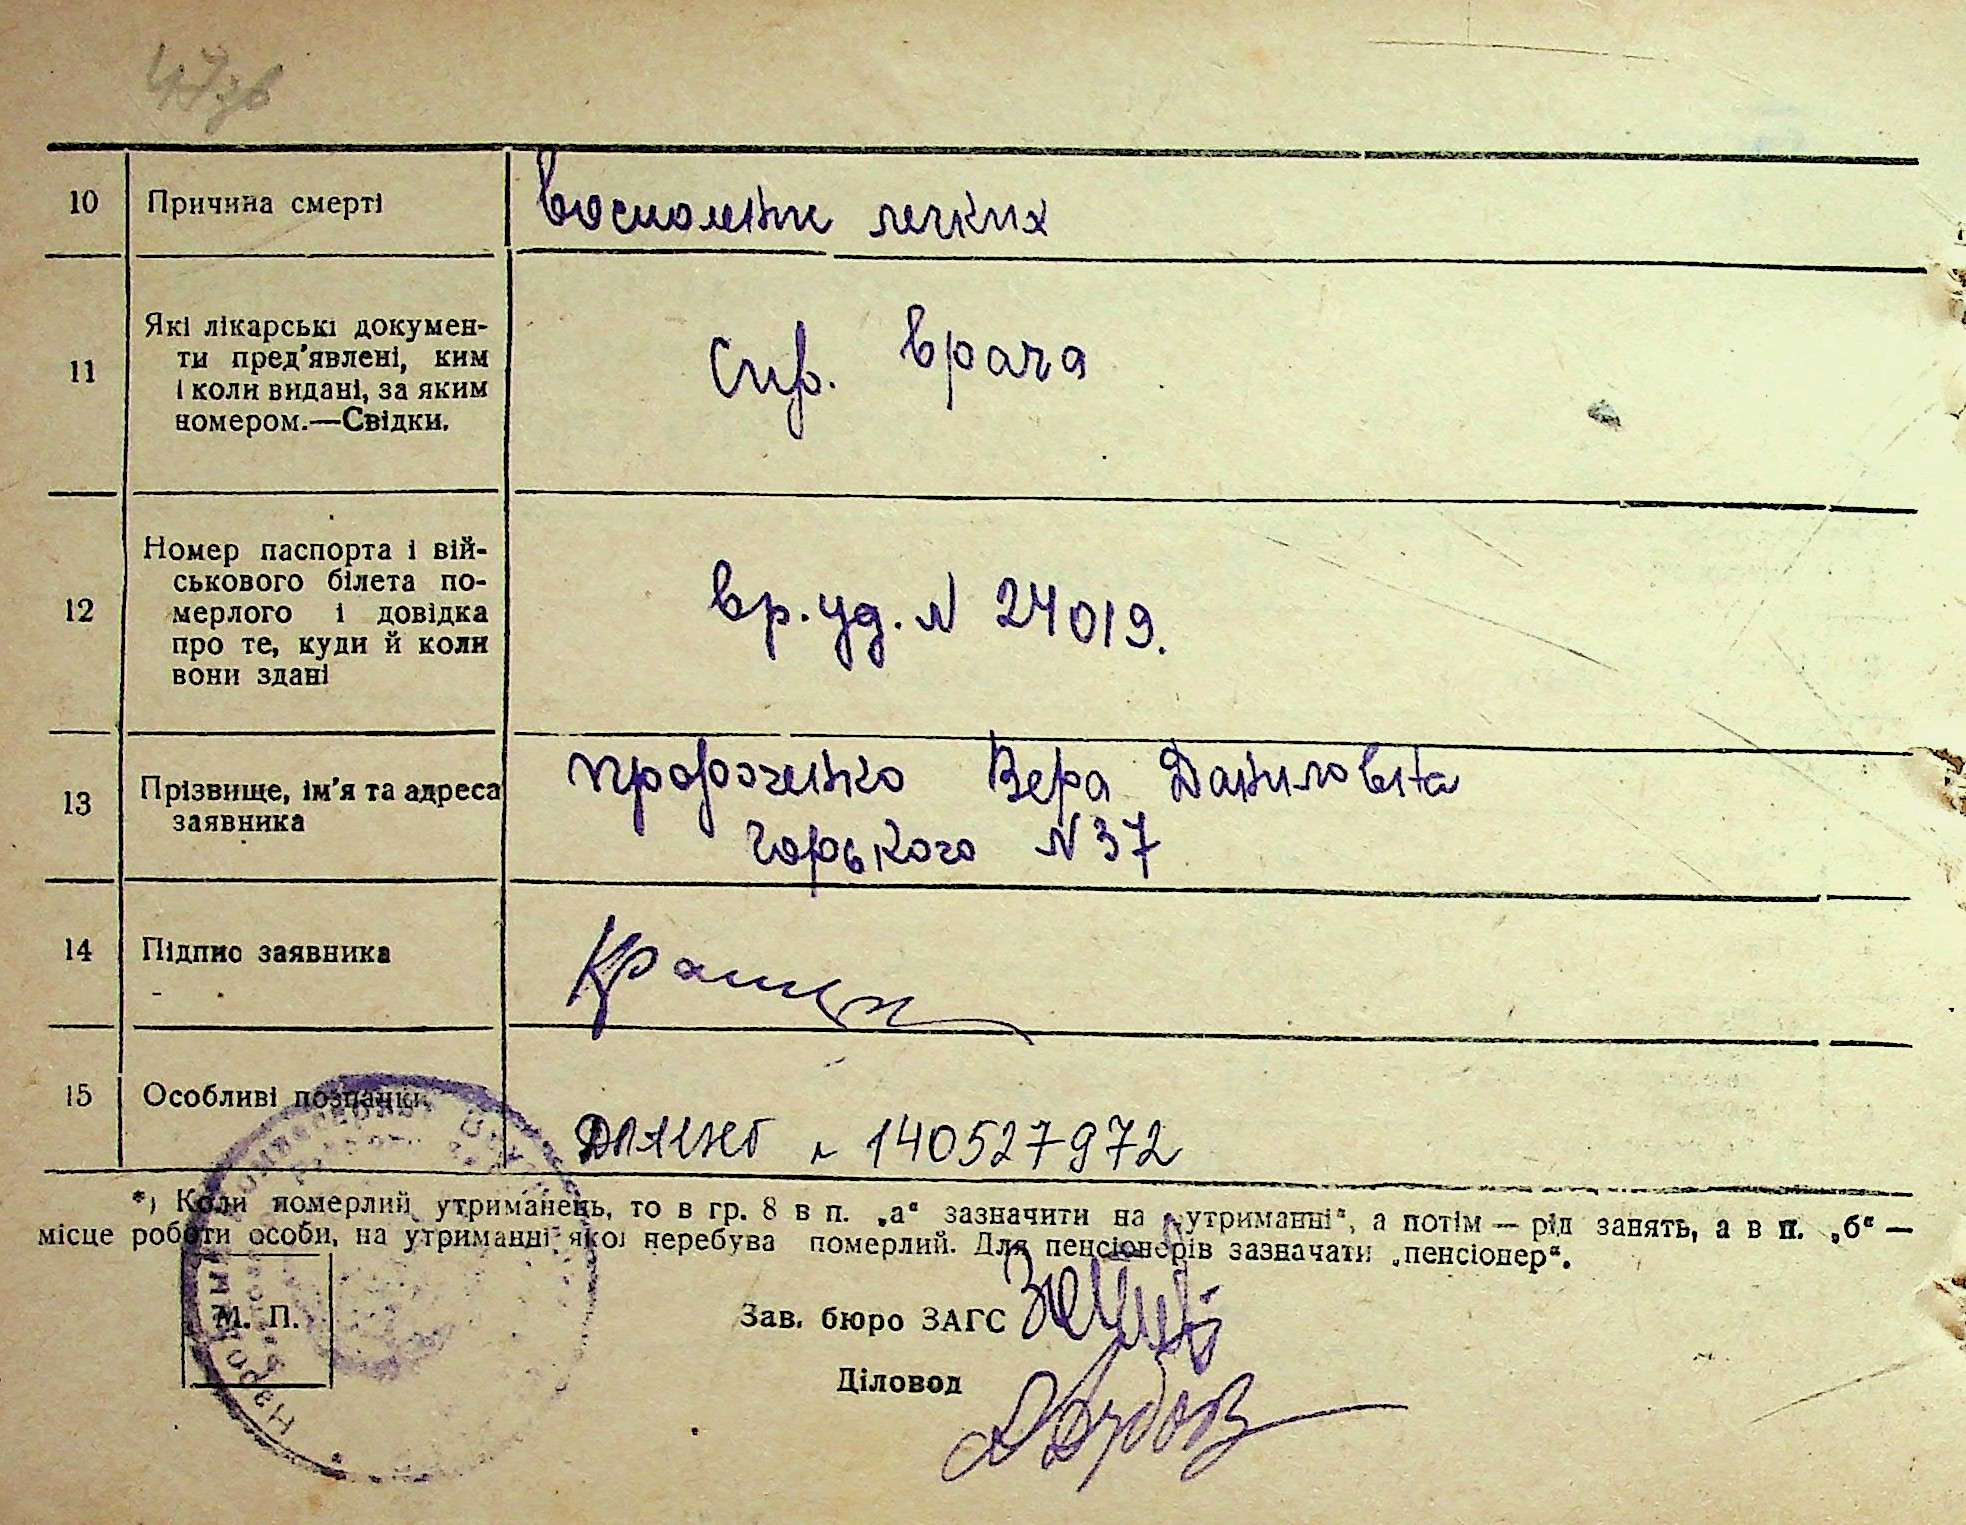 10 Причина смерті восполение легких
11 Які лікарські докумен-
ти пред'явлені, ким
і коли видані, за яким
номером.—Свідки.
Спр. врача
12 Номер паспорта і вій-
ськового білета по-
мерлого і довідка
про те, куди й коли
вони здані
вр. уд. N 24019.
13 Прізвище, ім'я та адреса
заявника
Вера Даниловна
Горького N 37
14 Підпис заявника
15 Особливі позначки
N 140527972
*) Коли померлий утриманець, то в гр. 8 в п. „а“ зазначити на „утриманні“, а потім — рід занять, а в п. „б“ —
місце роботи особи, на утриманні якої перебував померлий. Для пенсіонерів зазначати „пенсіонер“.
М. П.
Зав. бюро ЗАГС
Діловод